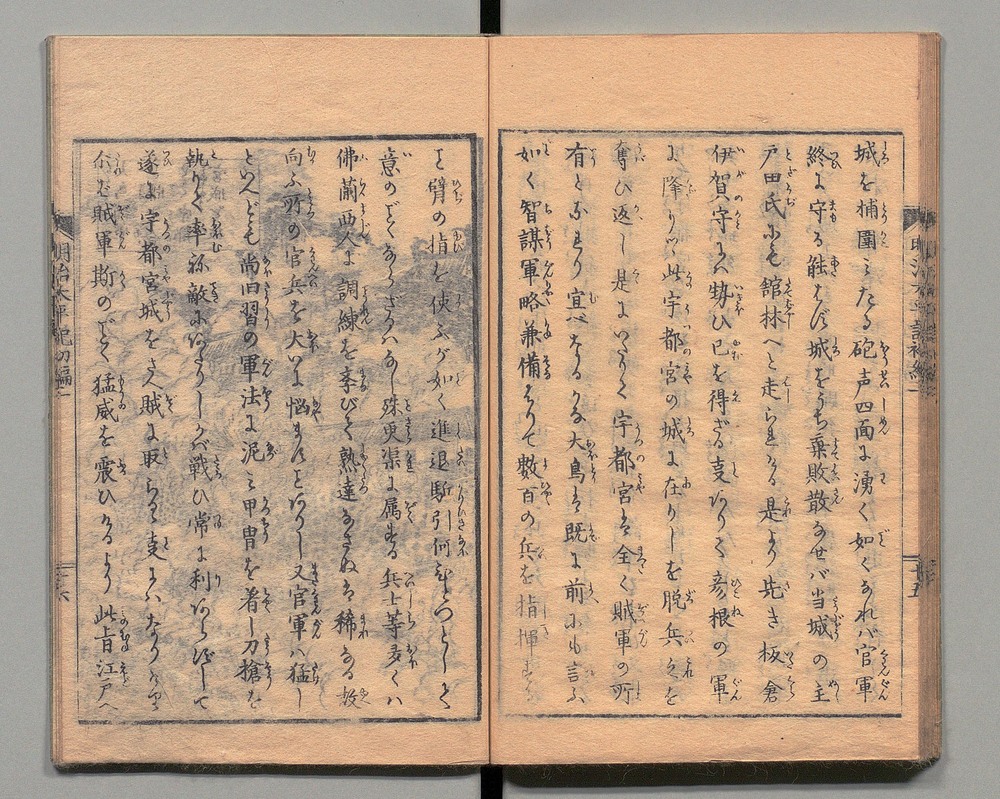 城を補圍みたる砲声四面に湧く如くなれバ官軍
終に守る能はず城をうち乗敗散なせバ当城の主
戸田氏にも館林へと走られける是より先き板倉
伊賀守にハ勢ひ已を得ざる支ありて彦根の軍
に降りツヽ此宇都宮の城に在りしを脱兵々を
奪ひ返し是にいたりて宇都宮は全く賊軍の所
有となりけり宜べなるかな大鳥は既に前にも言ふ
如く智謀軍略兼備はりて数百の兵を指揮する
を臂の指を使ふが如く進退駈引何
意のごとくならざるハなし殊更渠に属する兵士等多くハ
佛蘭西人に調練を学びて熟達なさぬは稀なる故
向ふ所の官兵を大いに悩ま 又官軍ハ猛し
といへども尚旧習の軍法に泥み甲冑を着し刀槍を
執りて率ね敵にあたりしかバ戦ひ常に利あらずして
遂に宇都宮城をさへ賊に取らるゝ支にハいたりけり
賊軍斯のごとく猛威を震ひけるより此旨江戸へ
明治太平記初編二